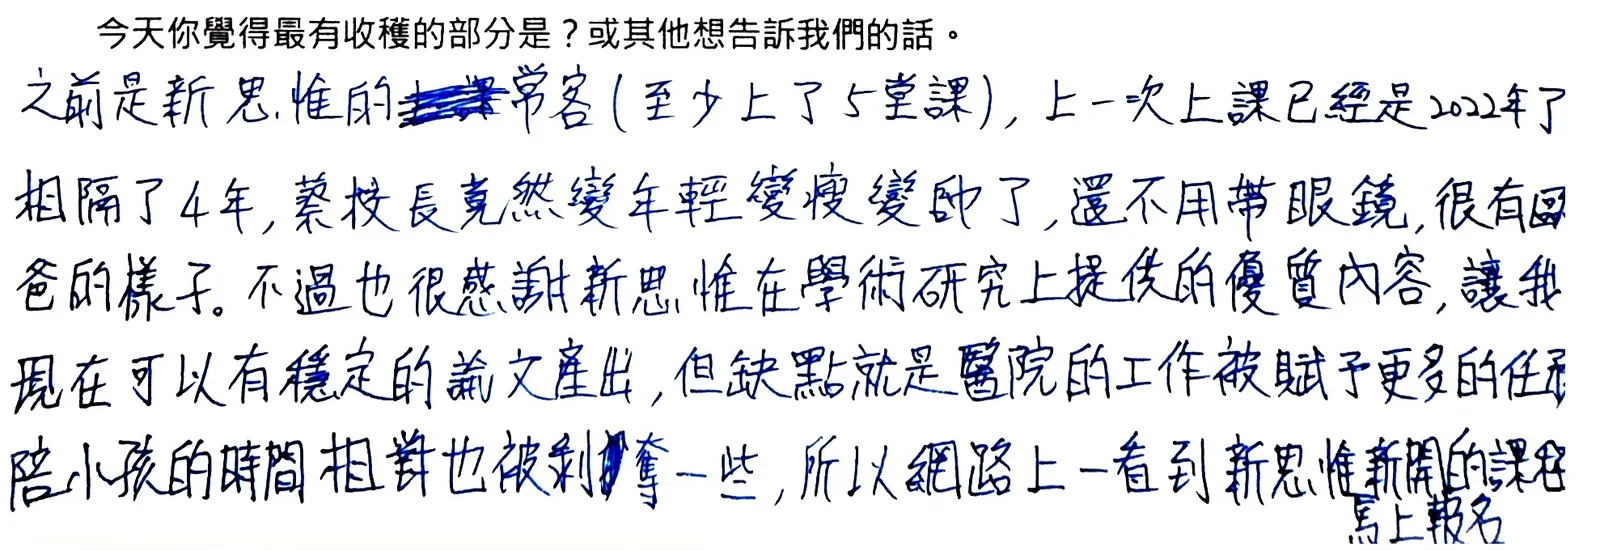 今天你覺得最有收穫的部分是？或其他想告訴我們的話。
之前是新思惟的常客(至少上了5堂課), 上一次上課已經是2022年了
相隔了4年, 蔡校長竟然變年輕變瘦變帥了, 還不用帶眼鏡, 很有
爸的樣子。不過也很感謝新思惟在學術研究上提供的優質內容, 讓我
現在可以有穩定的論文產出, 但缺點就是醫院的工作被賦予更多的任務
陪小孩的時間相對也被剝奪一些, 所以網路上一看到新思惟新開的課程
馬上報名